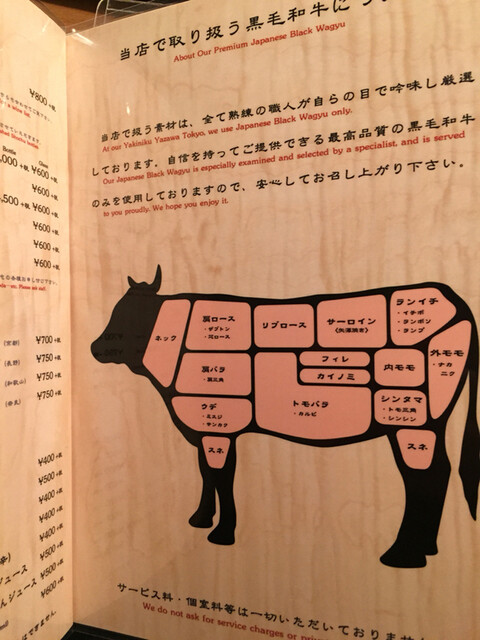 ¥800 +税
Bottle
Glass
,000 +税 ¥600 +税
¥600 +税
,500 +税 ¥600 +税
¥600 +税
¥600 +税
¥600 +税
(京都) ¥700 +税
(長野) ¥750 +税
(和歌山) ¥750 +税
(奈良) ¥750 +税
¥400 +税
¥500 +税
¥400 +税
¥400 +税
¥400 +税
¥500 +税
ジュース ¥500 +税
んジュース ¥600 +税
はできません。
当店で取り扱う黒毛和牛に
About Our Premium Japanese Black Wagyu
当店で扱う素材は、全て熟練の職人が自らの目で吟味し厳選
At our Yakiniku Yazawa Tokyo, we use Japanese Black Wagyu only.
しております。自信を持ってご提供できる最高品質の黒毛和牛
Our Japanese Black Wagyu is especially examined and selected by a specialist, and is served
のみを使用しておりますので、安心してお召し上がり下さい。
to you proudly. We hope you enjoy it.
ネック
肩ロース
・ザブトン
・芯ロース
リブロース
サーロイン
ランイチ
・イチボ
・ランボソ
・ランプ
肩バラ
・肩三角
フィレ
カイノミ
内モモ
外モモ
・ナカ
ニク
ウデ
・ミスジ
・サンカク
トモバラ
・カルビ
シンタマ
・トモ三角
・シンシン
スネ
スネ
サービス料・個室料等は一切いただいておりませ
We do not ask for service charges or